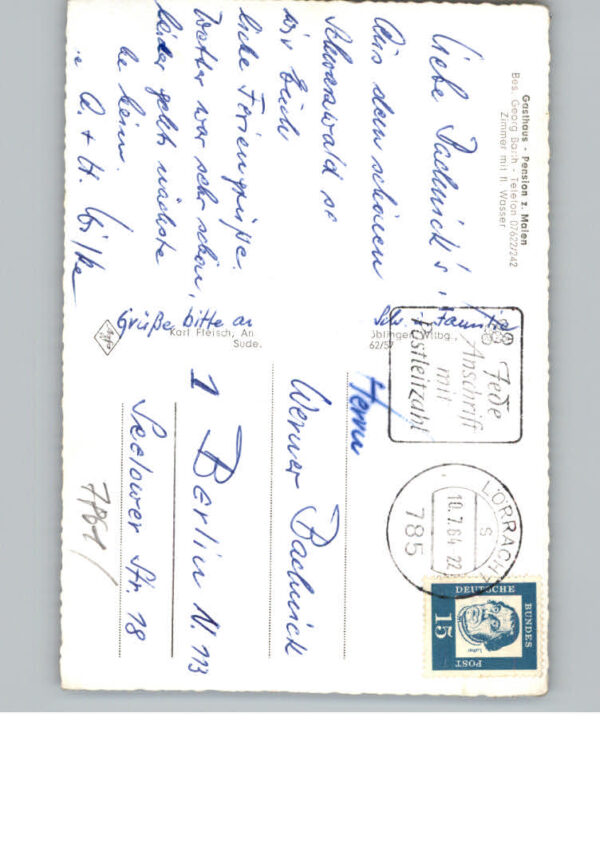 Gasthaus - Pension z. Maien
Bes. Georg Barth - Telefon 07622/242
Zimmer mit fl. Wasser
Liebe
Aus dem schönen
Schwarzwald
wir Euch
liebe Feriengrüße.
Wetter war sehr schön,
leider geht nächste
heim.
A. + H.
Grüße bitte an
Karl Fleisch, An
Sude.
62/57
Jede
Anschrift
mit
Postleitzahl
LÖRRACH 1
S
10.7.64 22
785
DEUTSCHE
BUNDES
POST
15
Luther
Herrn
Werner
1 Berlin N. 113
Seelower Str. 18